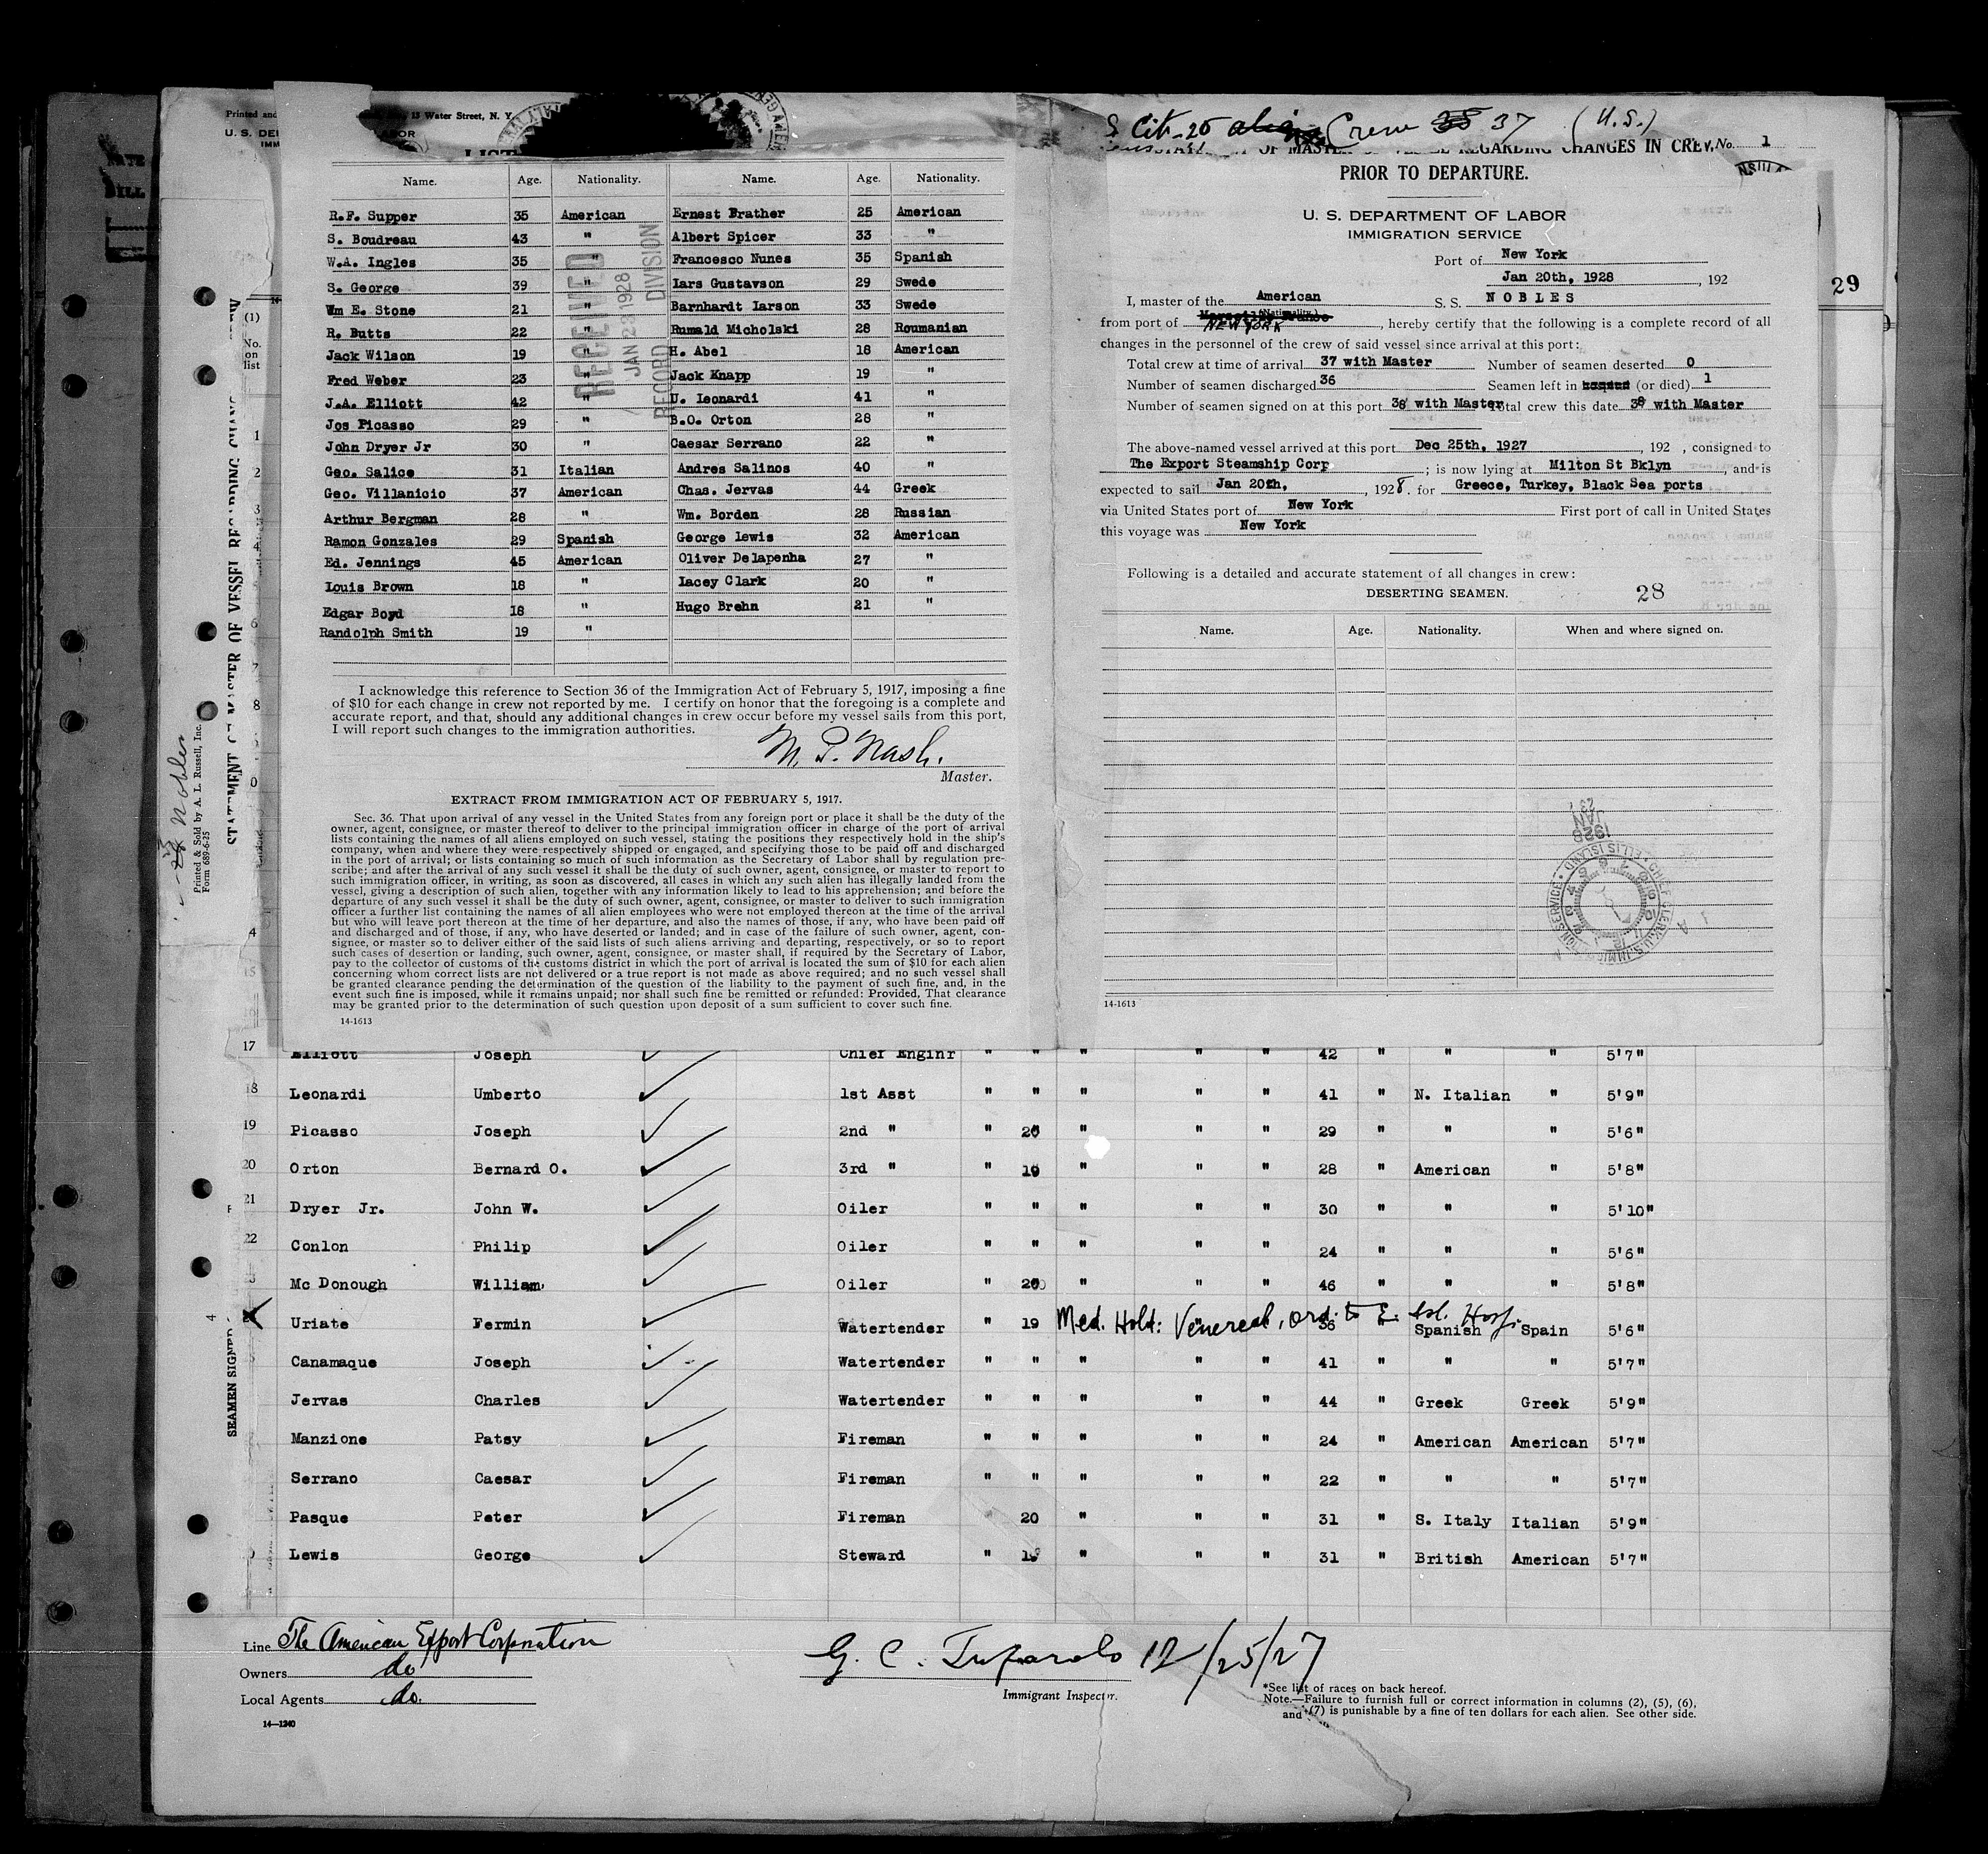 Printed and
13 Water Street, N. Y.
U. S. DE
LABOR
Name. Age. Nationality. Name. Age. Nationality.
R.F. Supper 35 American Ernest Prather 25 American
S. Boudreau 43 " Albert Spicer 33 "
W.A. Ingles 35 " Francesco Nunes 35 Spanish
S. George 39 " Lars Gustavson 29 Swede
Wm E. Stone 21 " Barnhardt Larson 33 Swede
R. Butts 22 " Rumald Micholski 28 Roumanian
Jack Wilson 19 " H. Abel 18 American
Fred Weber 23 Jack Knapp 19 "
J.A. Elliott 42 " U. Leonardi 41 "
Jos Picasso 29 " B.O. Orton 28 "
John Dryer Jr 30 " Caesar Serrano 22 "
Geo. Salice 31 Italian Andres Salinos 40 "
Geo. Villanicio 37 American Chas. Jervas 44 Greek
Arthur Bergman 28 " Wm. Borden 28 Russian
Ramon Gonzales 29 Spanish George Lewis 32 American
Ed. Jennings 45 American Oliver Delapenha 27 "
Louis Brown 18 " Lacey Clark 20 "
Edgar Boyd 18 " Hugo Brehn 21 "
Randolph Smith 19 "
RECEIVED
JAN 23 1928
RECORD DIVISION
I acknowledge this reference to Section 36 of the Immigration Act of February 5, 1917, imposing a fine
of $10 for each change in crew not reported by me. I certify on honor that the foregoing is a complete and
accurate report, and that, should any additional changes in crew occur before my vessel sails from this port,
I will report such changes to the immigration authorities.
M. P. Nash.
Master.
EXTRACT FROM IMMIGRATION ACT OF FEBRUARY 5, 1917.
Sec. 36. That upon arrival of any vessel in the United States from any foreign port or place it shall be the duty of the
owner, agent, consignee, or master thereof to deliver to the principal immigration officer in charge of the port of arrival
lists containing the names of all aliens employed on such vessel, stating the positions they respectively hold in the ship's
company, when and where they were respectively shipped or engaged, and specifying those to be paid off and discharged
in the port of arrival; or lists containing so much of such information as the Secretary of Labor shall by regulation pre-
scribe; and after the arrival of any such vessel it shall be the duty of such owner, agent, consignee, or master to report to
such immigration officer, in writing, as soon as discovered, all cases in which any such alien has illegally landed from the
vessel, giving a description of such alien, together with any information likely to lead to his apprehension; and before the
departure of any such vessel it shall be the duty of such owner, agent, consignee, or master to deliver to such immigration
officer a further list containing the names of all alien employees who were not employed thereon at the time of the arrival
but who will leave port thereon at the time of her departure, and also the names of those, if any, who have been paid off
and discharged and of those, if any, who have deserted or landed; and in case of the failure of such owner, agent, con-
signee, or master so to deliver either of the said lists of such aliens arriving and departing, respectively, or so to report
such cases of desertion or landing, such owner, agent, consignee, or master shall, if required by the Secretary of Labor,
pay to the collector of customs of the customs district in which the port of arrival is located the sum of $10 for each alien
concerning whom correct lists are not delivered or a true report is not made as above required; and no such vessel shall
be granted clearance pending the determination of the question of the liability to the payment of such fine, and, in the
event such fine is imposed, while it remains unpaid; nor shall such fine be remitted or refunded: Provided, That clearance
may be granted prior to the determination of such question upon deposit of a sum sufficient to cover such fine.
14-1613
Cit-25 Crew 37 (U.S.)
OF MASTER VESSEL REGARDING CHANGES IN CREW, No. 1
PRIOR TO DEPARTURE.
U. S. DEPARTMENT OF LABOR
IMMIGRATION SERVICE
Port of New York
Jan 20th, 1928, 192
I, master of the American S. S. NOBLES
(Nationality.)
from port of NEW YORK, hereby certify that the following is a complete record of all
changes in the personnel of the crew of said vessel since arrival at this port:
Total crew at time of arrival 37 with Master Number of seamen deserted 0
Number of seamen discharged 36 Seamen left in (or died) 1
Number of seamen signed on at this port 38 with Master Total crew this date 38 with Master
The above-named vessel arrived at this port Dec 25th, 1927, 192 , consigned to
The Export Steamship Corp; is now lying at Milton St Bklyn, and is
expected to sail Jan 20th, 1928. for Greece, Turkey, Black Sea ports
via United States port of New York First port of call in United States
this voyage was New York
Following is a detailed and accurate statement of all changes in crew:
DESERTING SEAMEN. 28
Name. Age. Nationality. When and where signed on.
1928
JAN
23
CHIEF CLERK, U.S. IMMIGRATION SERVICE • ELLIS ISLAND
14-1613
29
(1)
No.
on
list
STATEMENT OF MASTER OF VESSEL REGARDING CHANG
Nobles
Printed & Sold by A. L. Russell, Inc.
Form 689-6-25
SEAMEN SIGNED
17 Elliott Joseph Chief Enginr " " " " " 42 " " " 5'7"
18 Leonardi Umberto 1st Asst " " " " " 41 " N. Italian " 5'9"
19 Picasso Joseph 2nd " " 20 " " " 29 " " " 5'6"
20 Orton Bernard O. 3rd " " 19 " " " 28 " American " 5'8"
21 Dryer Jr. John W. Oiler " " " " " 30 " " " 5'10"
22 Conlon Philip Oiler " " " " " 24 " " " 5'6"
Mc Donough William Oiler " 20 " " " 46 " " " 5'8"
Uriate Fermin Watertender " 19 Med. Hold: Venereal, ord. to E. Isl. Hosp. Spanish Spain 5'6"
Canamaque Joseph Watertender " " " " " 41 " " " 5'7"
Jervas Charles Watertender " " " " " 44 " Greek Greek 5'9"
Manzione Patsy Fireman " " " " " 24 " American American 5'7"
Serrano Caesar Fireman " " " " " 22 " " " 5'7"
Pasque Peter Fireman 20 " " " 31 " S. Italy Italian 5'9"
Lewis George Steward " 19 " " " 31 " British American 5'7"
Line The American Export Corporation
Owners do
Local Agents do.
14—1240
12/25/27
Immigrant Inspector.
*See list of races on back hereof.
Note.—Failure to furnish full or correct information in columns (2), (5), (6),
and (7) is punishable by a fine of ten dollars for each alien. See other side.